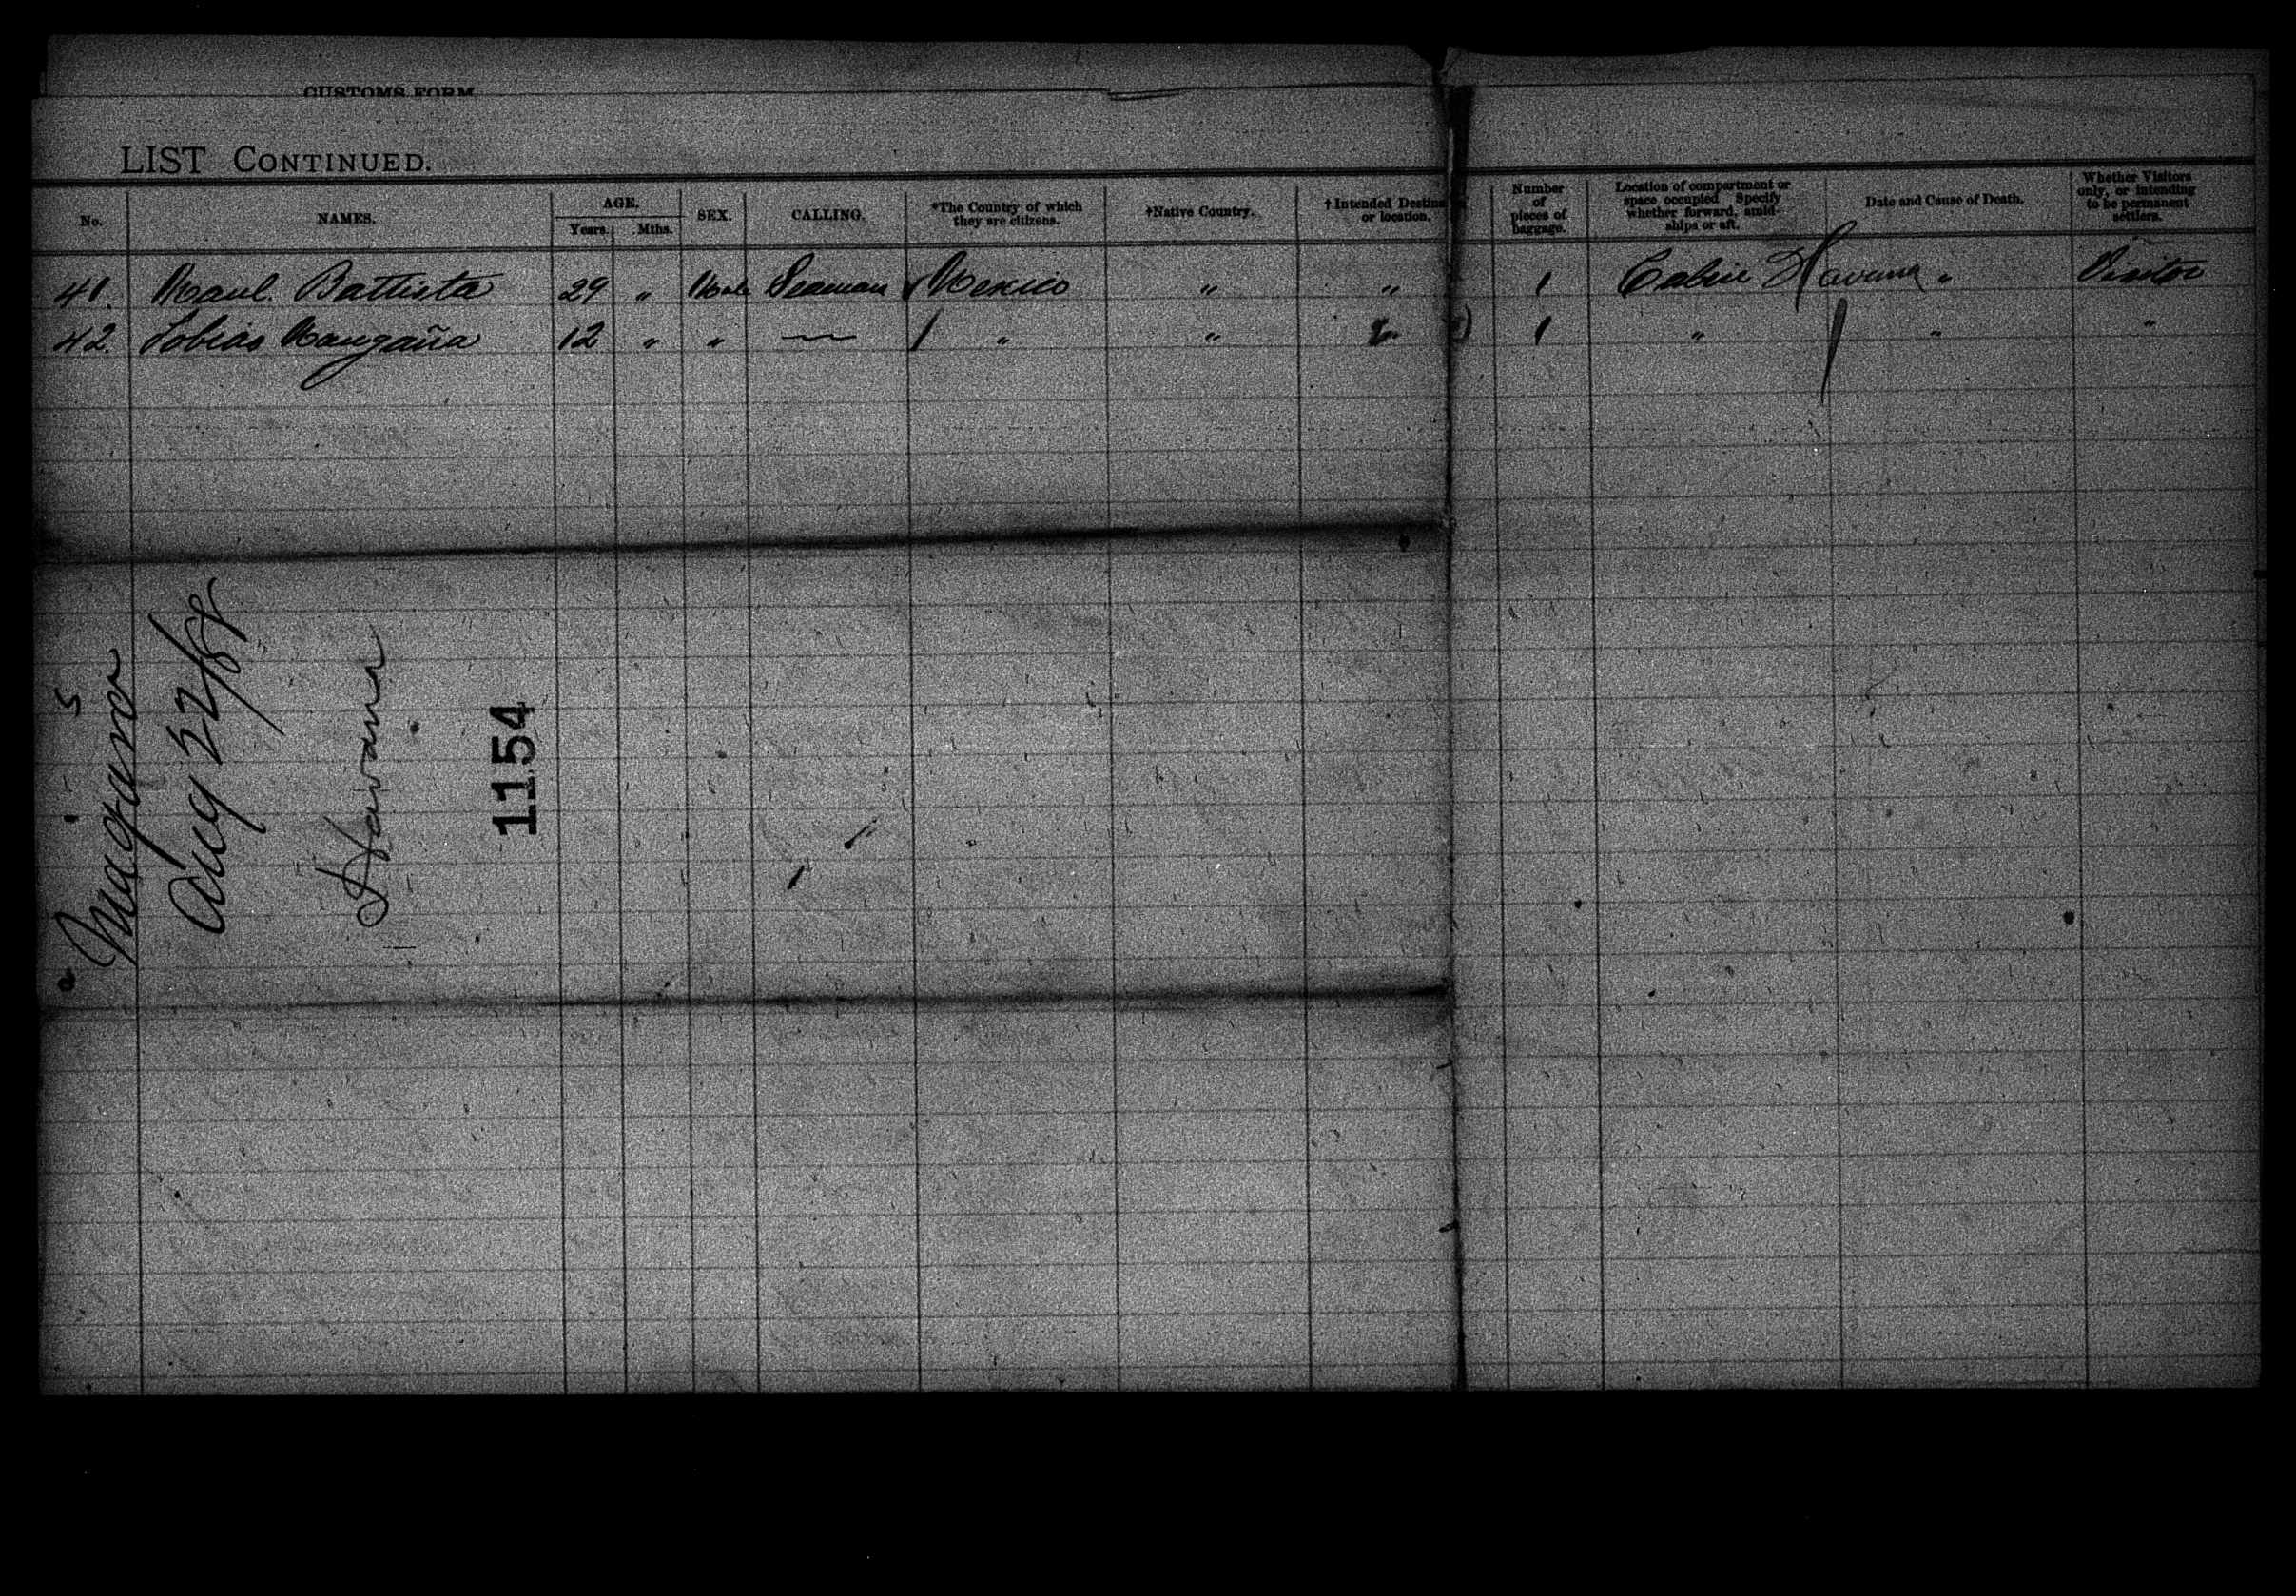 CUSTOMS FORM
LIST CONTINUED.
No. NAMES. AGE. Years. Mths. SEX. CALLING. *The Country of which they are citizens. †Native Country. †Intended Destina or location. Number of pieces of baggage. Location of compartment or space occupied Specify whether forward, amid-ships or aft. Date and Cause of Death. Whether Visitors only, or intending to be permanent settlers.
41. Manl. Battista 29 " Male Seaman Mexico " " 1 Cabin Havana " Visitor
42. Tobias Mangaña 12 " " — " " " 1 " " "
Niagara
Aug 22/88
Havana
1154